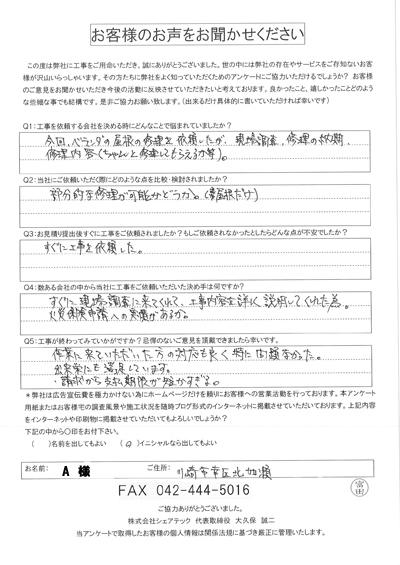 お客様のお声をお聞かせください
この度は弊社に工事をご用命いただき、誠にありがとうございました。世の中には弊社の存在やサービスをご存知ないお客様
が沢山いらっしゃいます。その方たちに弊社をよく知っていただくためのアンケートにご協力いただけるでしょうか？ お客様
のご意見をお聞かせいただき今後の活動に反映させていただきたいと考えております。良かったこと、嬉しかったことどのよう
な些細な事でも結構です。是非ご協力お願い致します。（出来るだけ具体的に書いていただければ幸いです）
Q1：工事を依頼する会社を決める時にどんなことで悩まれていましたか？
今回、ベランダの屋根の修理を依頼したが、現場調査、修理の状況、
修理内容（ちゃんと修理してもらえるか等）。
Q2：当社にご依頼いただく際にどのような点を比較・検討されましたか？
部分的な修理が可能かどうか。（屋根だけ）
Q3：お見積り提出後すぐに工事をご依頼されましたか？もしご依頼されなかったとしたらどんな点が不安でしたか？
すぐに工事を依頼した。
Q4：数ある会社の中から当社に工事をご依頼いただいた決め手は何ですか？
すぐに現場調査に来てくれて、工事内容を詳しく説明してくれた為。
火災保険申請への実績があるから。
Q5：工事が終わってみていかがですか？忌憚のないご意見を頂戴できましたら幸いです。
作業に来ていただいた方の対応も良く特に問題なかった。
出来栄にも満足しています。
・請求から支払期限が短かすぎる。
＊弊社は広告宣伝費を極力かけない為にホームページだけを頼りにお客様への営業活動を行っております。本アンケート
用紙またはお客様宅の調査風景や施工状況を随時ブログ形式のインターネットに掲載させていただいております。上記内容
をインターネットや印刷物に掲載させていただいてもよろしいでしょうか？
下記の中から〇印をお付下さい。
（ ）名前を出してもよい （○）イニシャルなら出してもよい
お名前： A 様 ご住所： 川崎市幸区北加瀬
FAX 042-444-5016
富田
ご協力ありがとうございました。
株式会社シェアテック 代表取締役 大久保 誠二
当アンケートで取得したお客様の個人情報は関係法規に基づき厳正に管理いたします。